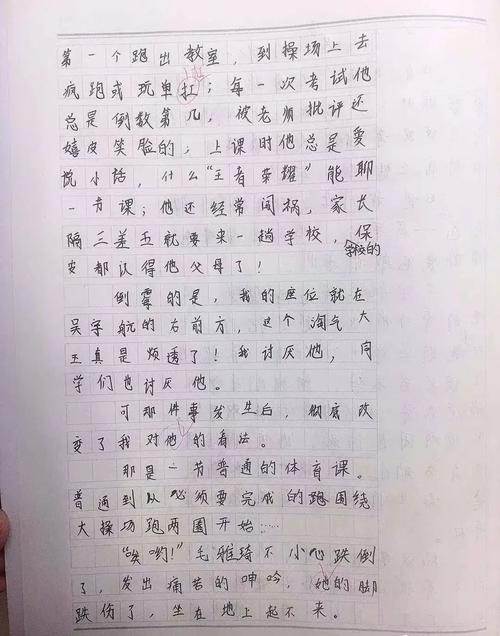 第一个跑出教室，到操场上去
疯跑或玩单杠；每一次考试他
总是倒数第几，被老师批评还
嬉皮笑脸的；上课时他总是爱
说小话，什么“王者荣耀”能聊
一节课；他还经常闯祸，家长
隔三差五就要来一趟学校，保
学校的
安都认得他父母了！
倒霉的是，我的座位就在
吴宇航的右前方，这个淘气大
王真是烦透了！我讨厌他，同
学们也讨厌他。
可那件事发生后，彻底改
变了我对他的看法。
那是一节普通的体育课。
普通到从必须要完成的跑围绕
大操场跑两圈开始……
“唉哟！”毛雅琦不小心跌倒
了，发出痛苦的呻吟，她的脚
跌伤了，坐在地上起不来。